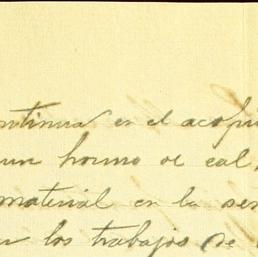 ntinua en el acopi
un horno de cal,
material en la se
los trabajos de